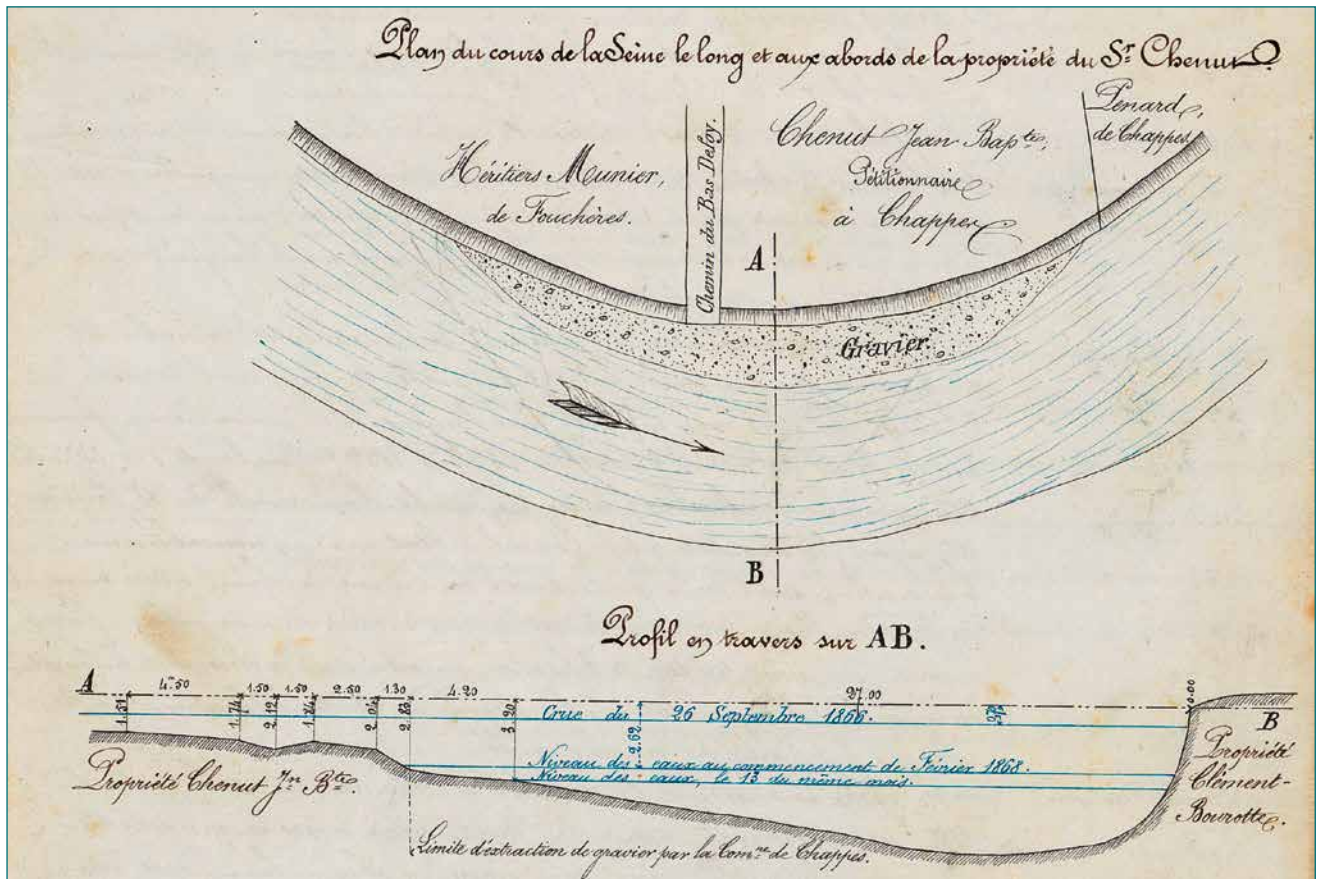 Plan du cours de la Seine le long et aux abords de la propriété du Sr. Chenut
Héritiers Meunier,
de Fouchères.
Chemin du Bas Defoy.
Chenut Jean Bapte,
Pétitionnaire
à Chappes
Penard,
de Chappes
A
Gravier.
B
Profil en travers sur AB.
A
4m.50
1.50
1.50
2.50
1.30
4.20
27.00
1.74
2.12
1.74
2.04
3.20
0.00
B
Crue du 26 Septembre 1866.
2.62
Niveau des eaux au commencement de Février 1868.
Niveau des eaux, le 13 du même mois.
Propriété Chenut Jn. Bte.
Propriété
Clément-
Bourotte.
Limite d'extraction de gravier par la Comne de Chappes.